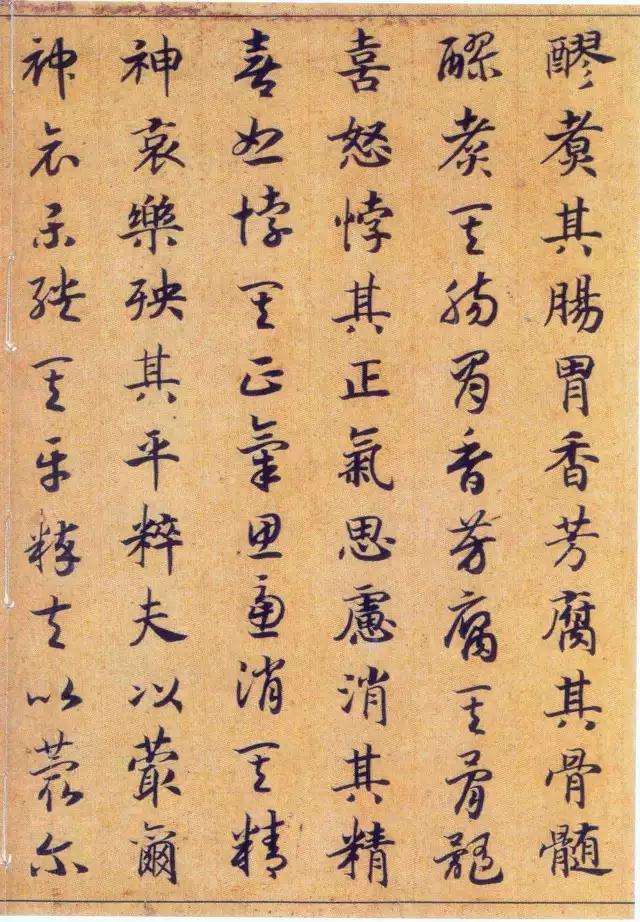 醪煑其腸胃香芳腐其骨髓
醪煑其腸胃香芳腐其骨髓
喜怒悖其正氣思慮消其精
喜怒悖其正氣思慮消其精
神哀樂殃其平粹夫以蕞爾
神哀樂殃其平粹夫以蕞爾